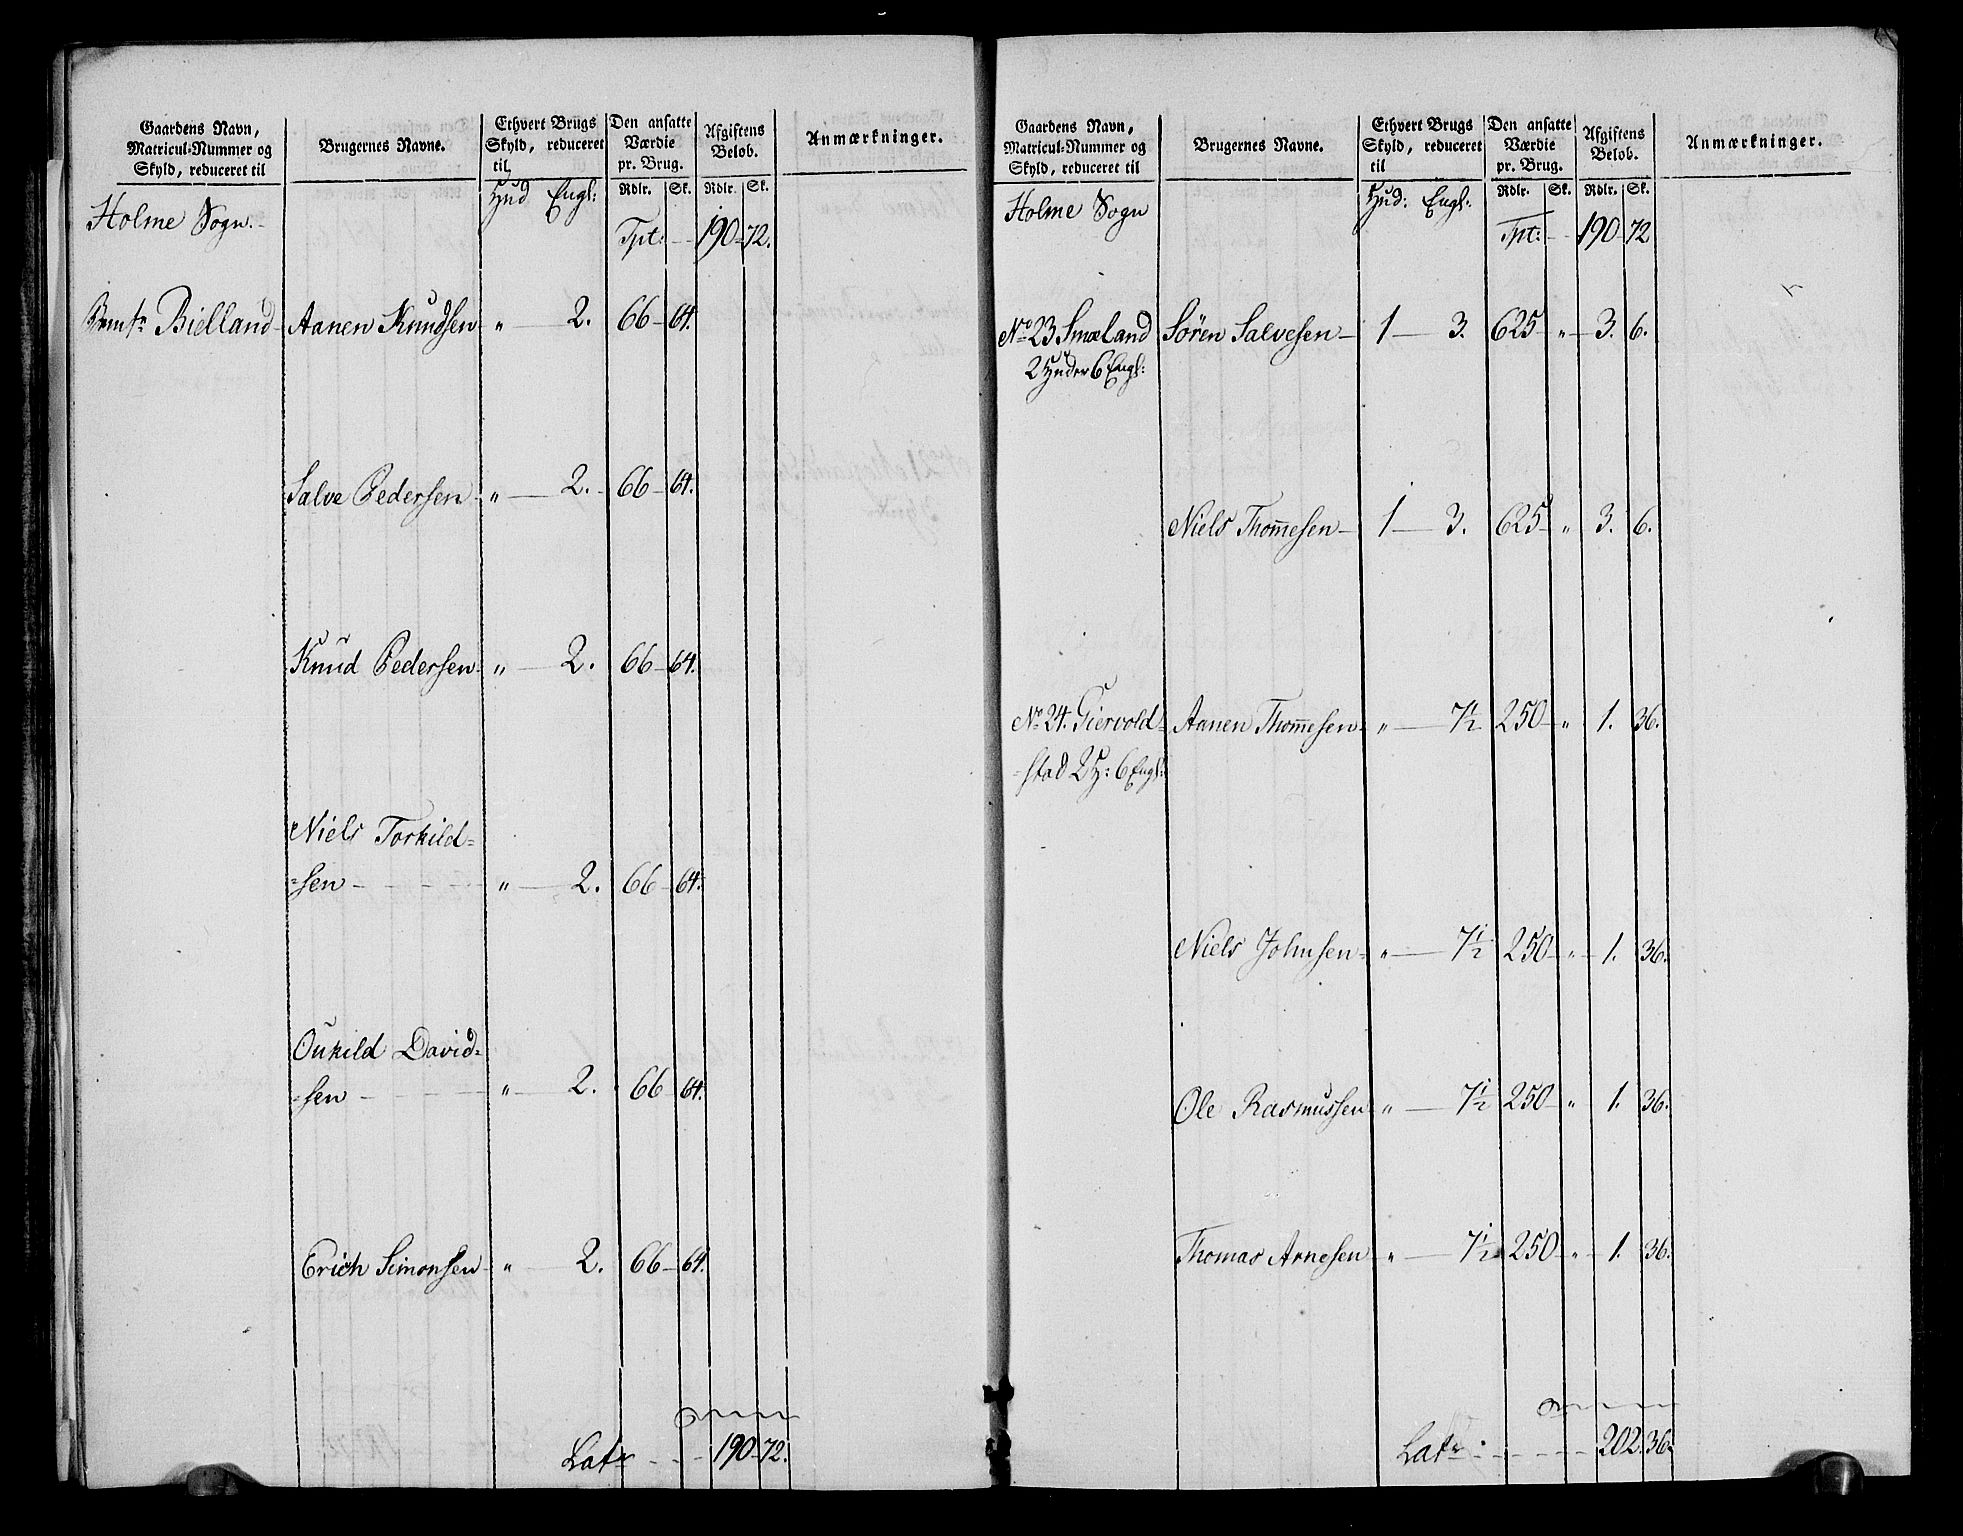 Gaardens Navn,
Matricul-Nummer og
Skyld, reduceret til
Brugernes Navne.
Ethvert Brugs
Skyld, reduceret
til
Den ansatte
Værdie
pr. Brug.
Afgiftens
Beløb.
Anmærkninger.
Hud Engl: Rdlr. Sk. Rdlr. Sk.
Holme Sogn.
Tpt: 190 72.
Bielland Aanen Knudsen " 2. 66 64.
Salve Pedersen " 2. 66 64.
Knud Pedersen " 2. 66 64.
Niels Torkild=
=sen " 2. 66 64.
Oukild David=
=sen " 2. 66 64.
Erich Simonsen " 2. 66 64.
Latr 190 72.
Gaardens Navn,
Matricul-Nummer og
Skyld, reduceret til
Brugernes Navne.
Ethvert Brugs
Skyld, reduceret
til
Den ansatte
Værdie
pr. Brug.
Afgiftens
Beløb.
Anmærkninger.
Hud: Engl: Rdlr. Sk. Rdlr. Sk.
Holme Sogn
Tpt: 190 72
No 23 Smæland Sören Salvesen 1 3. 625 " 3. 6.
2 Huder 6 Engl:
Niels Thom̄esen 1 3. 625 " 3. 6.
No 24. Giervold= Aanen Thom̄esen " 7½ 250 " 1. 36.
=stad 2 H: 6 Engl:
Niels Johnsen " 7½ 250 " 1. 36.
Ole Rasmussen " 7½ 250 " 1. 36.
Thomas Arnesen " 7½ 250 " 1. 36.
Latr 202. 36.